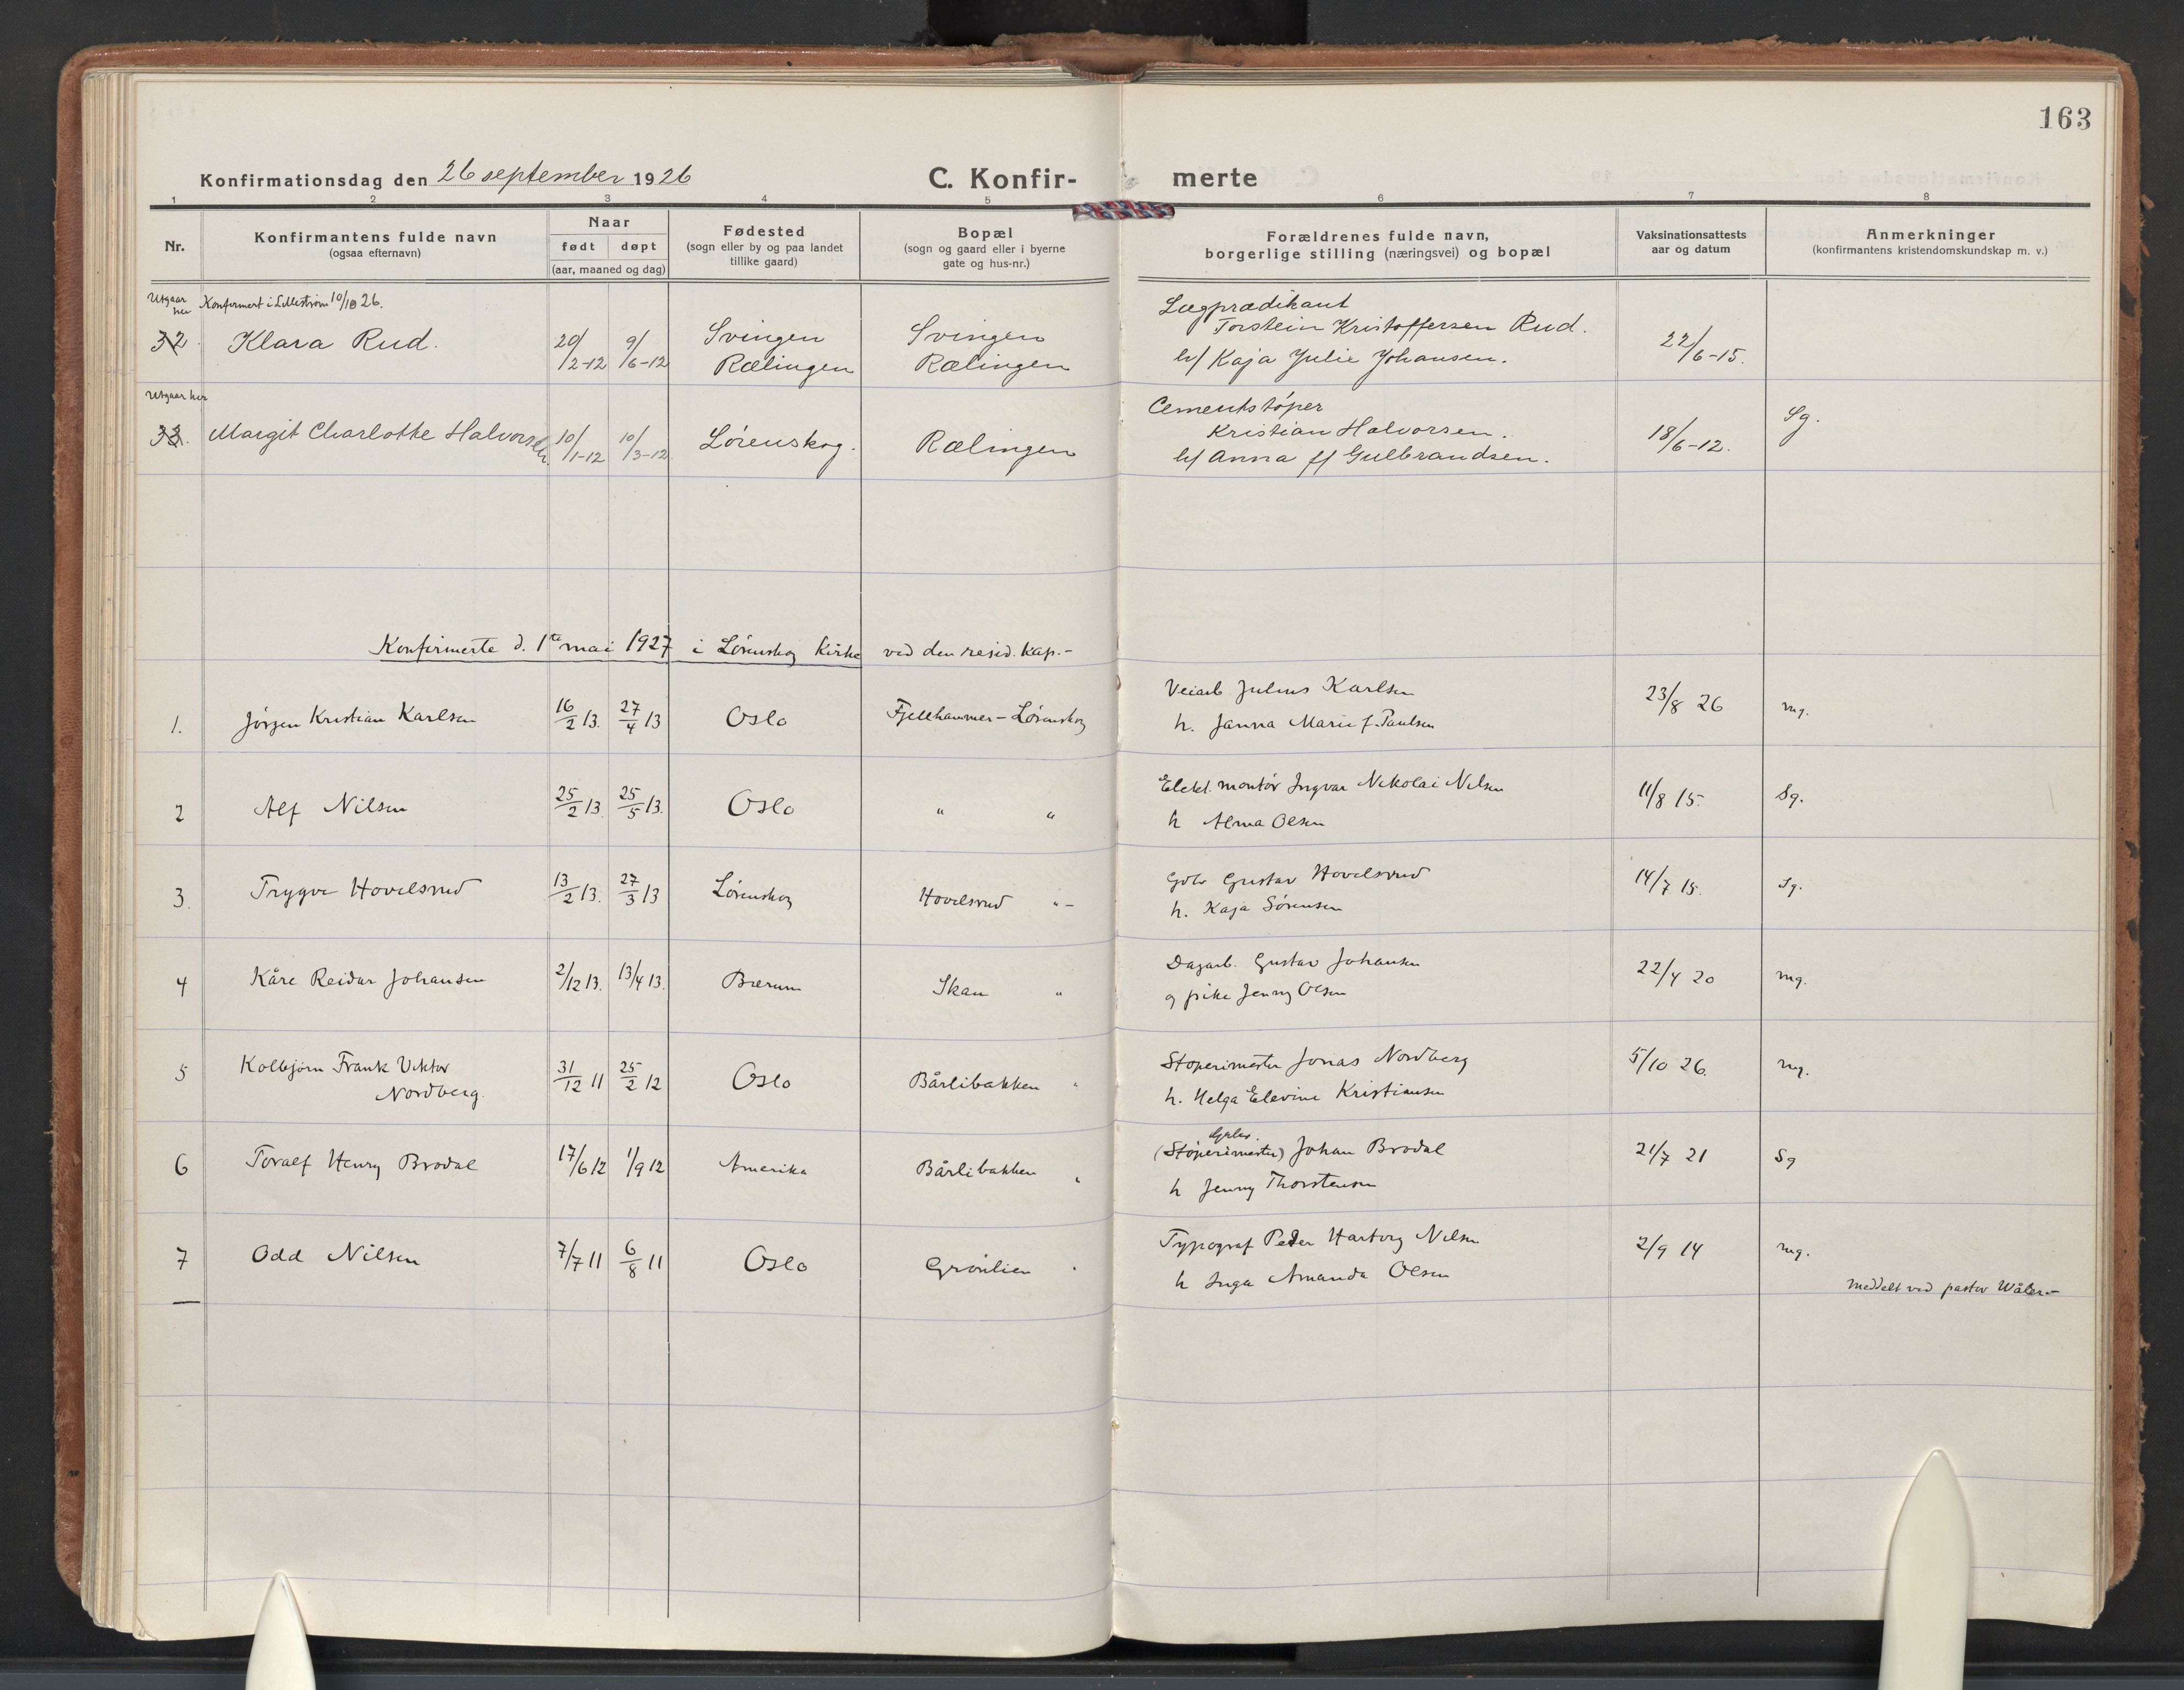 163
Konfirmationsdag den 26 september 1926
C. Konfir- merte
1 2 3 4 5 6 7 8
Nr.
Konfirmantens fulde navn
(ogsaa efternavn)
Naar
født døpt
(aar, maaned og dag)
Fødested
(sogn eller by og paa landet
tillike gaard)
Bopæl
(sogn og gaard eller i byerne
gate og hus-nr.)
Forældrenes fulde navn,
borgerlige stilling (næringsvei) og bopæl
Vaksinationsattests
aar og datum
Anmerkninger
(konfirmantens kristendomskundskap m. v.)
Utgaar her Konfirmert i Lillestrøm 10/10 26.
32. Klara Rud. 20/2-12 9/6-12 Svingen Rælingen Svingen Rælingen
Lægprædikant
Torstein Kristoffersen Rud.
h/ Kaja Julie Johansen. 22/6-15.
Utgaar her
33. Margit Charlotte Halvorsen. 10/1-12 10/3-12 Lørenskog. Rælingen
Cementstøper
Kristian Halvorsen.
h/ Anna f/ Gulbrandsen. 18/6-12. Sg.
Konfirmerte d. 1te mai 1927 i Lørenskog kirke ved den resid. kap.-
1. Jörgen Kristian Karlsen 16/2 13. 27/4 13 Oslo Fjellhammer - Lørenskog
Veiarb Julius Karlsen
h. Janna Marie f. Paulsen 23/8 26 mg.
2 Alf Nilsen 25/2 13. 25/5 13. Oslo " "
Elekt. montör Ingvar Nikolai Nilsen
h Alma Olsen 11/8 15. Sg.
3. Trygve Hovelsrud 13/2 13. 27/3 13 Lørenskog Hovelsrud " -
Gbr Gustav Hovelsrud
h. Kaja Sörensen 14/7 15. Sg.
4 Kåre Reidar Johansen 2/12 13. 13/4 13. Bærum Skan "
Dagarb. Gustav Johansen
og pike Jenny Olsen 22/4 20 mg.
5 Kolbjørn Frank Viktor
Nordberg. 31/12 11 25/2 12 Oslo Bårlibakken "
Støperimester Jonas Nordberg
h. Helga Elevine Kristiansen 5/10 26. mg.
6 Toralf Henry Brodal 17/6 12 1/9 12 Amerika Bårlibakken "
(Støperimester) Johan Brodal
h Jenny Thorstensen 21/7 21 Sg
7 Odd Nilsen 7/7 11 6/8 11 Oslo Grønlien "
Typograf Peder Hartvig Nilsen
h Inga Amanda Olsen 2/9 14 mg.
meddelt ved pastor Wåler.-